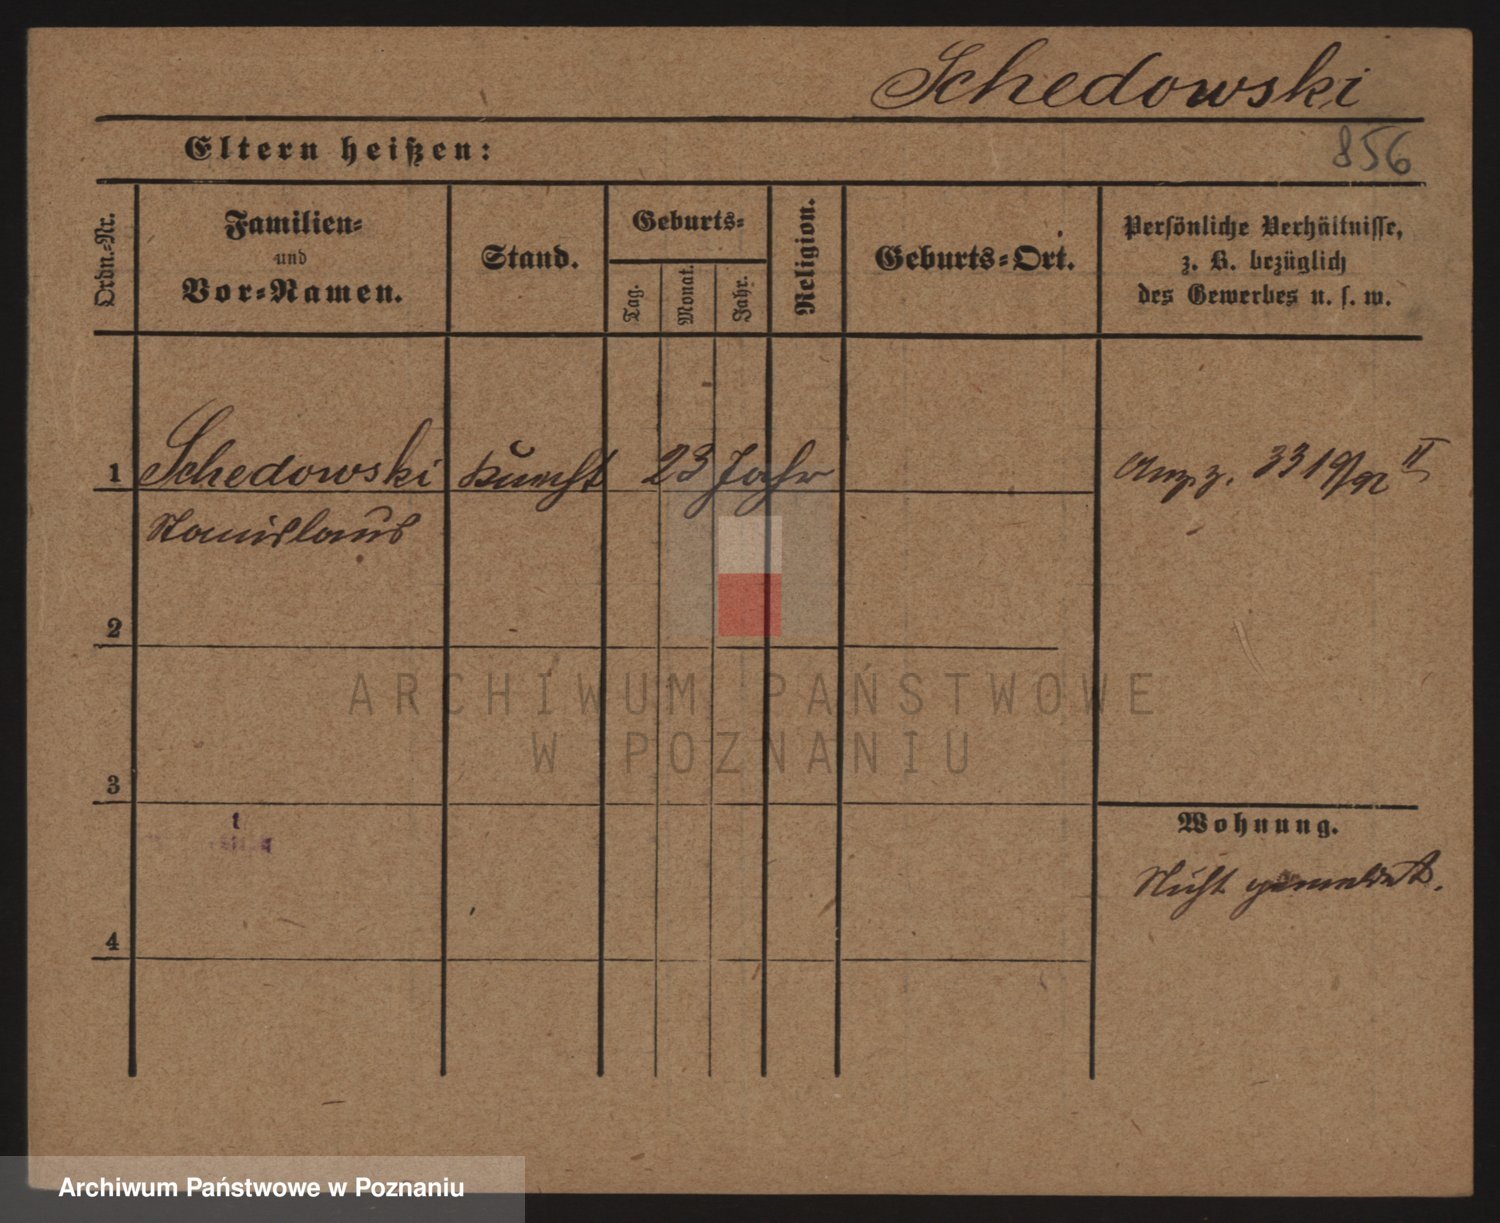 Schedowski
Eltern heißen:
856
Ordn.-Nr.
Familien-
und
Vor-Namen.
Stand.
Geburts-
Tag.
Monat.
Jahr.
Religion.
Geburts-Ort.
Persönliche Verhältnisse,
z. B. bezüglich
des Gewerbes u. s. w.
1 Schedowski Knecht 23 Jahr 3319/92 II
Stanislaus
2
ARCHIWUM PAŃSTWOWE
W POZNANIU
3
Wohnung.
Nicht gemeldet.
4
Archiwum Państwowe w Poznaniu